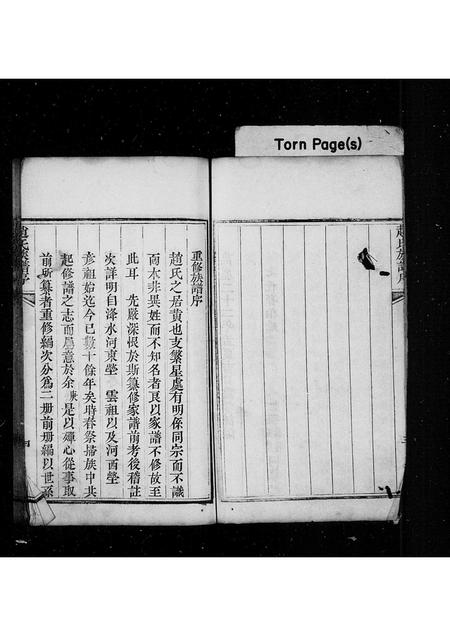 Torn Page(s)
趙氏族譜序
重修族譜序
趙氏之居貴也支繁星處有明係同宗而不識
而木非異姓而不知名者良以家譜不修故至
此耳 先嚴深恨於斯纂修家譜前考後稽註
次詳明自洚水河東塋 雲祖以及河西塋
彥祖始迄今已數十餘年矣時春祭掃族中共
起修譜之志而屬意於余 是以殫心從事取
前所纂者重修編次分為二册前册編以世系
趙氏族譜序